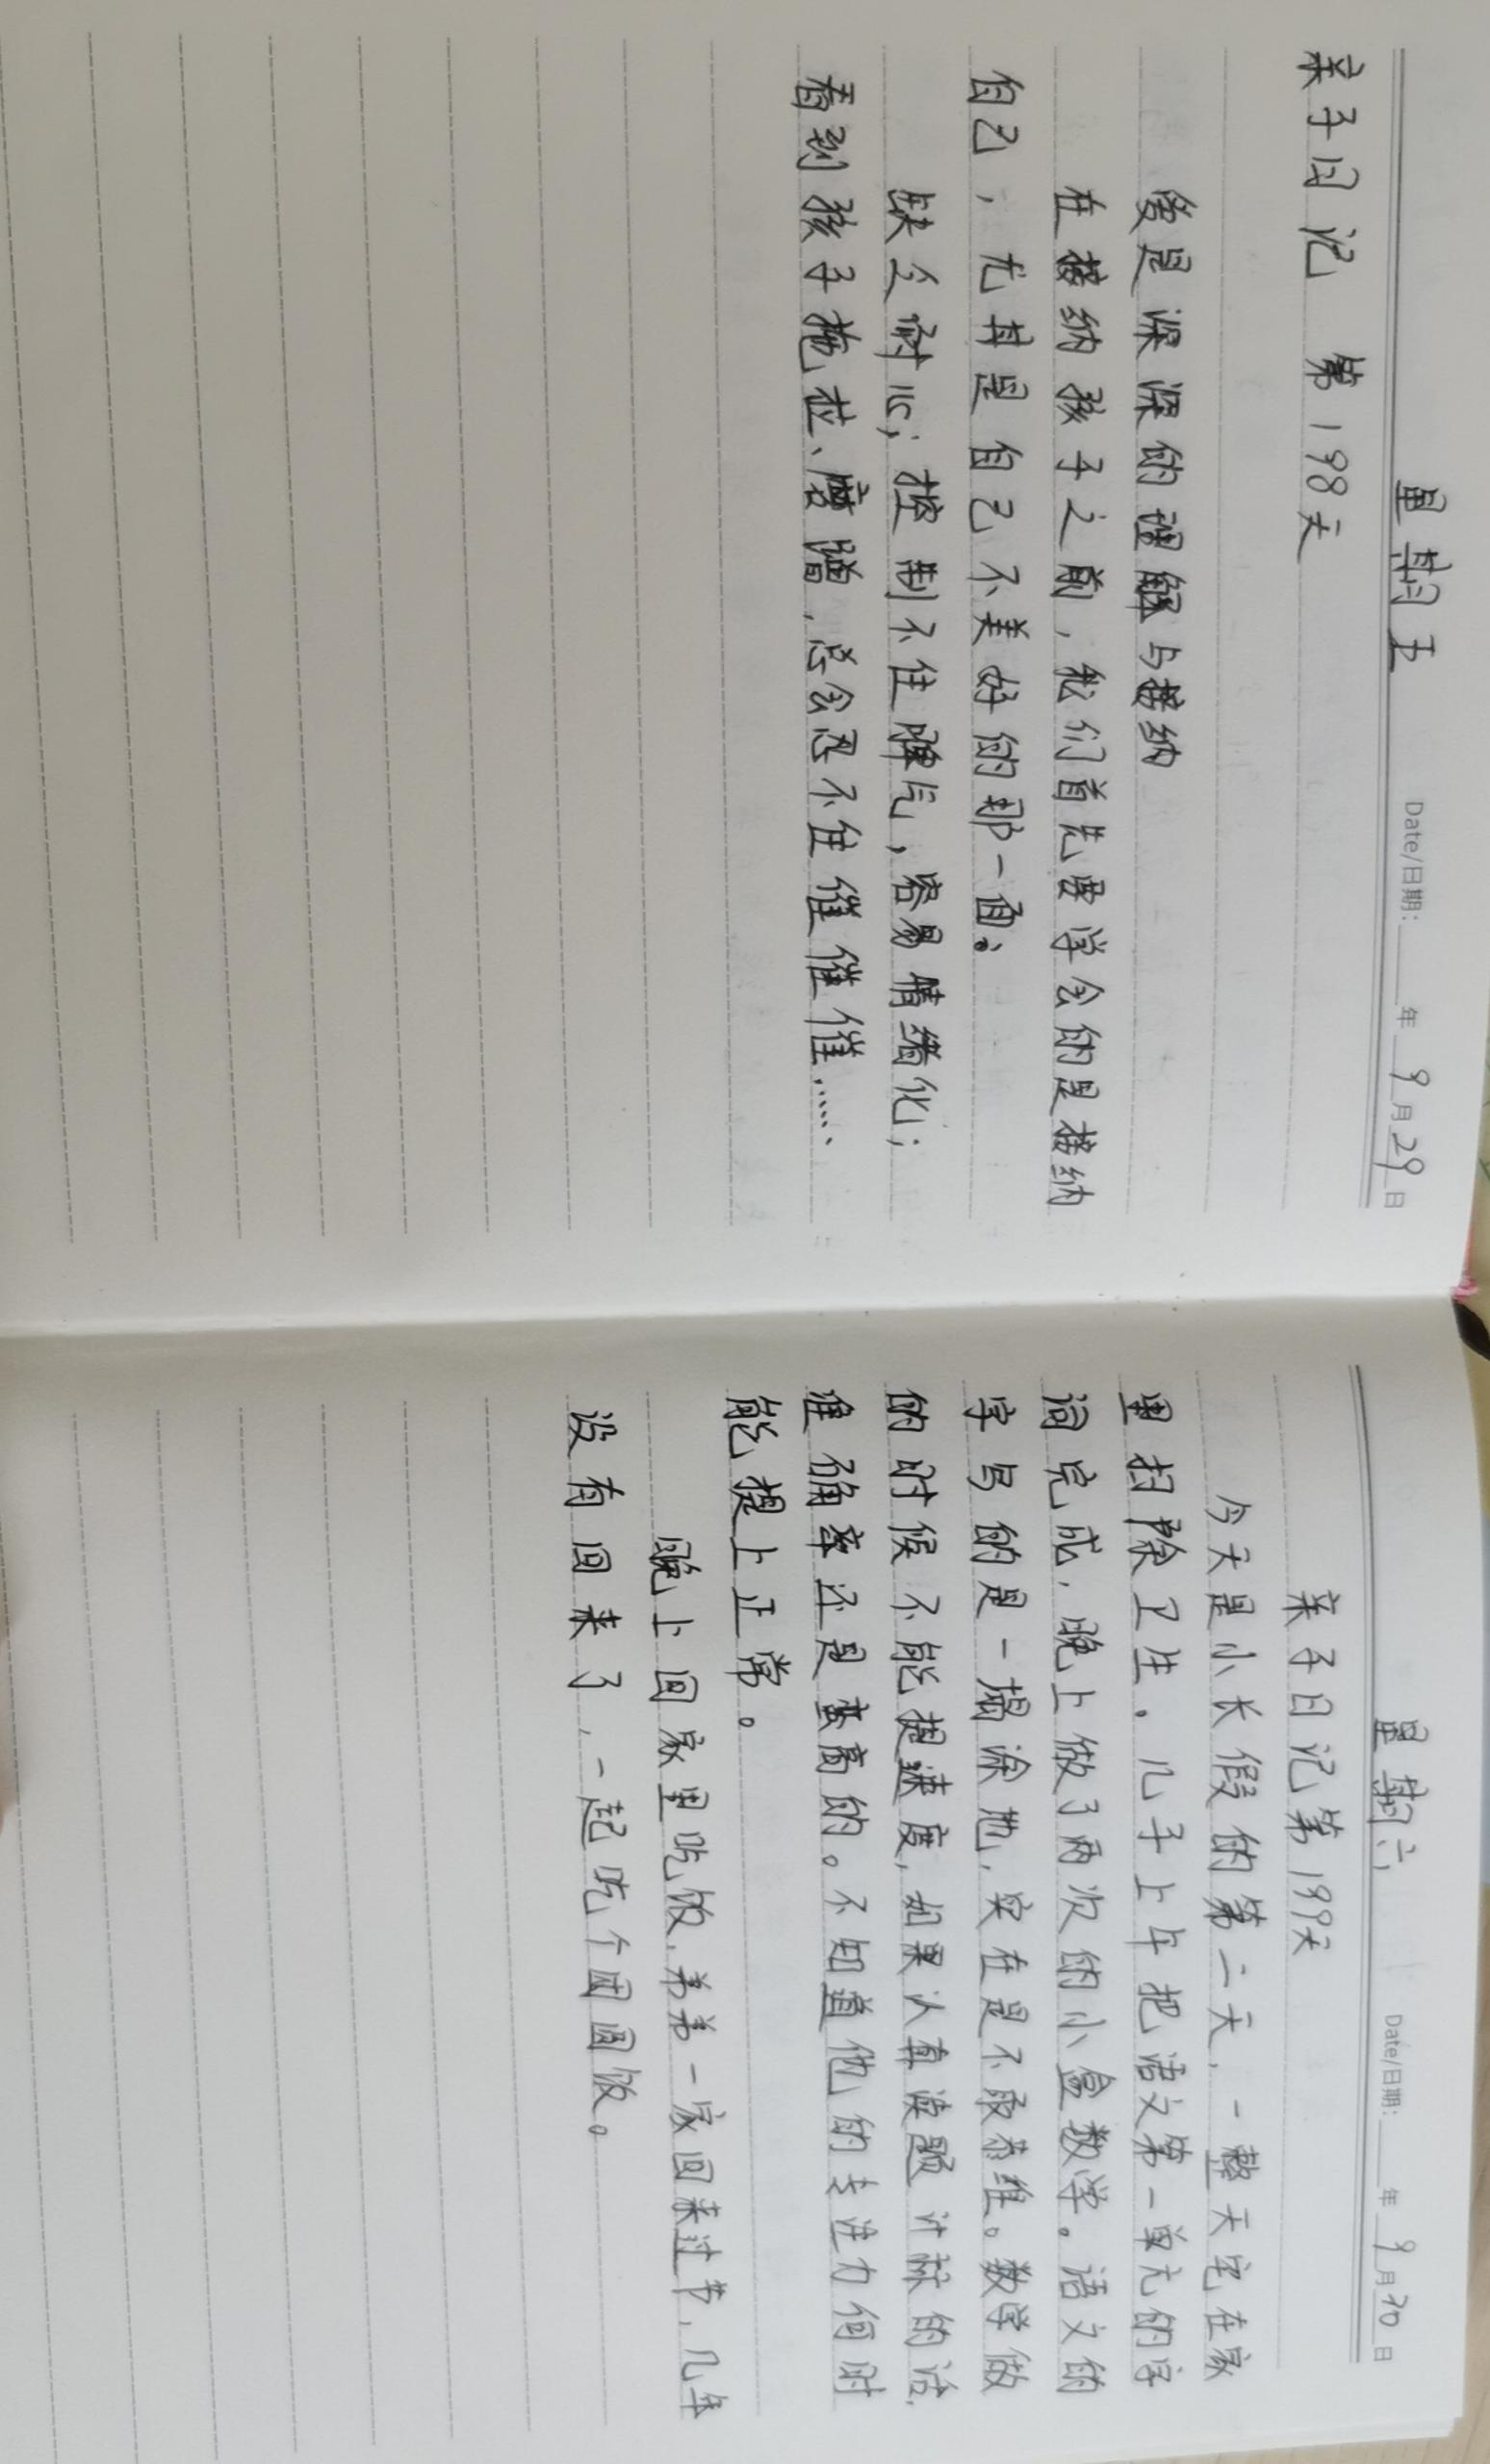 星期五 Date/日期: 年 9月29日
亲子日记 第198天
爱是深深的理解与接纳
在接纳孩子之前，我们首先要学会的是接纳
自己，尤其是自己不美好的那一面：
缺乏耐心；控制不住脾气，容易情绪化；
看到孩子拖拉、磨蹭，总会忍不住催催催……
星期六 Date/日期: 年 9月30日
亲子日记第199天
今天是小长假的第二天，一整天宅在家
里扫除卫生。儿子上午把语文第一单元的字
词完成，晚上做了两次的小盒数学。语文的
字写的是一塌涂地，实在是不敢恭维。数学做
的时候不能提速度，如果认真读题计标的话，
准确率还是蛮高的。不知道他的专注力何时
能提上正常。
晚上回家里吃饭，弟弟一家回来过节，几年
没有回来了，一起吃个团圆饭。